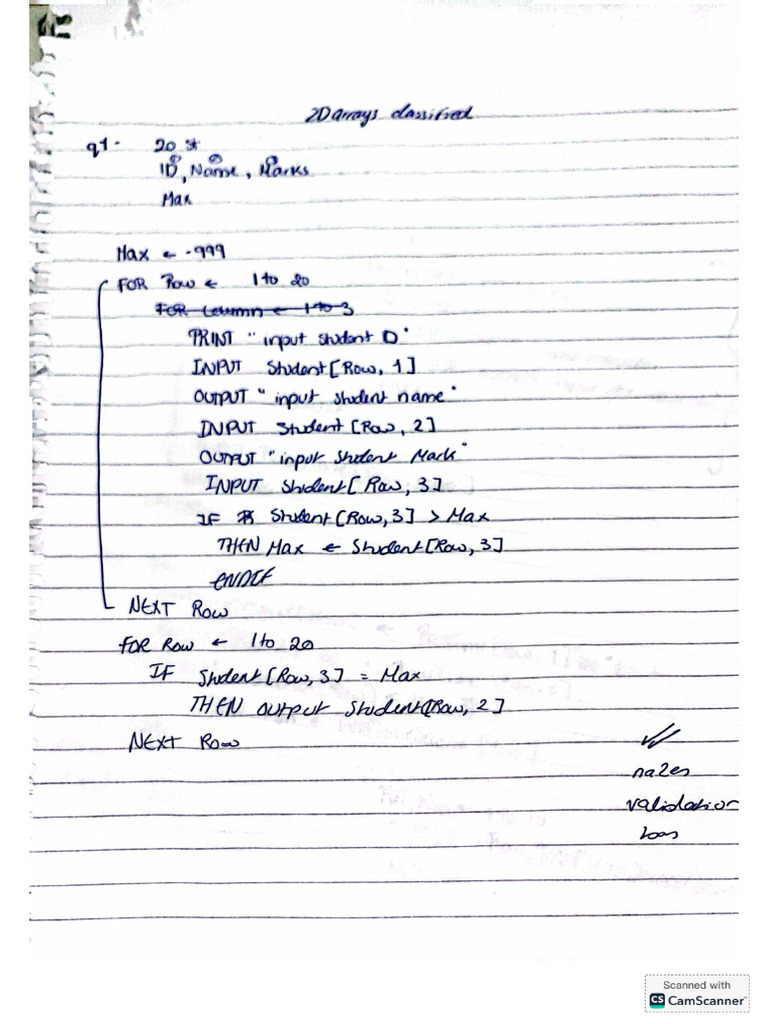 2D arrays classified
q1- 20 st
① ② ③
ID, Name, Marks
Max
Max ← -999
FOR Row ← 1 to 20
FOR Column ← 1 to 3
PRINT "input student ID"
INPUT Student[Row, 1]
OUTPUT "input student name"
INPUT Student [Row, 2]
OUTPUT "input student Mark"
INPUT Student[Row, 3]
IF Student[Row,3] > Max
THEN Max ← Student[Row, 3]
ENDIF
NEXT Row
FOR Row ← 1 to 20
IF Student[Row, 3] = Max
THEN OUTPUT Student[Row, 2]
NEXT Row
na2es
validation
Scanned with
CS CamScanner